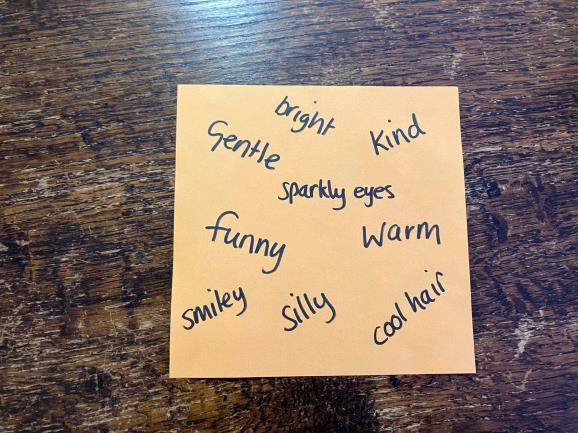 bright
Gentle
Kind
sparkly eyes
funny
Warm
smiley
silly
cool hair